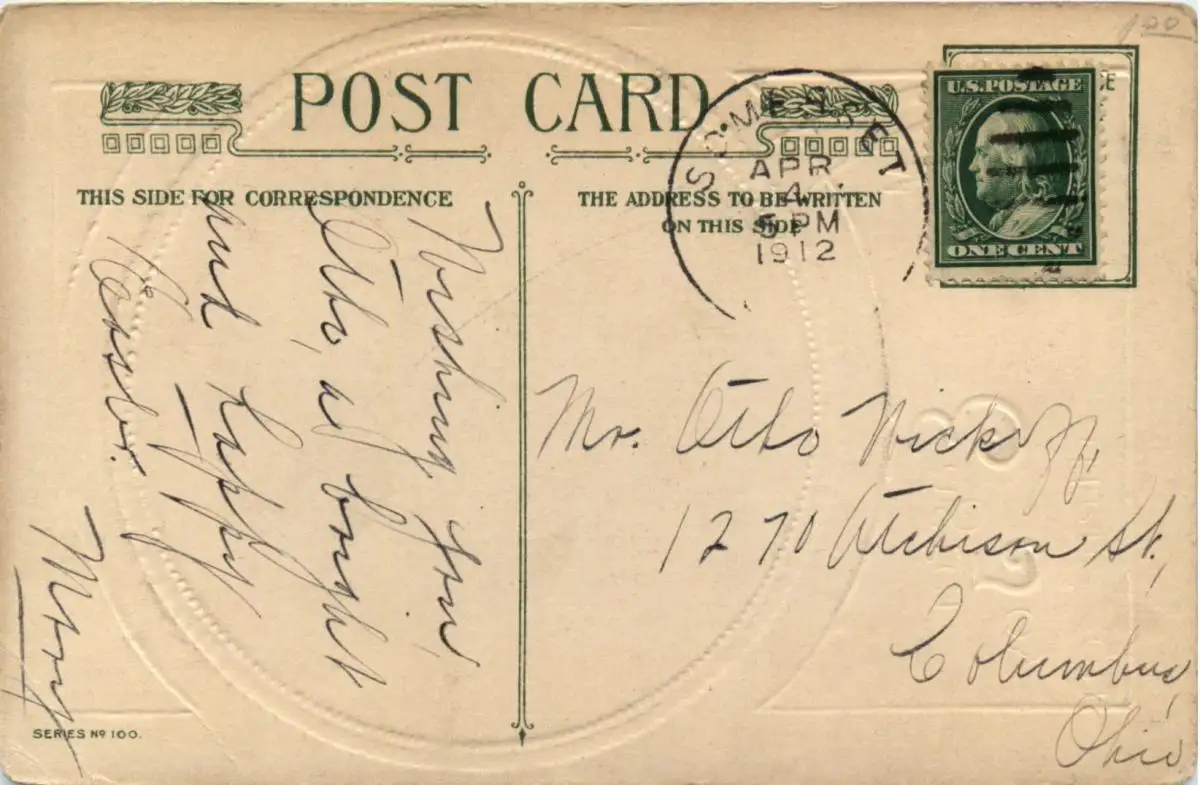 100
POST CARD
THIS SIDE FOR CORRESPONDENCE
THE ADDRESS TO BE WRITTEN
ON THIS SIDE
SOMERSET
APR
4
5 PM
1912
U.S. POSTAGE
ONE CENT
Wishing you,
Otho, a bright
and happy
Easter.
Mary
Mr. Otho Nickoff,
1270 Atchison St.,
Columbus,
Ohio
SERIES Nº 100.